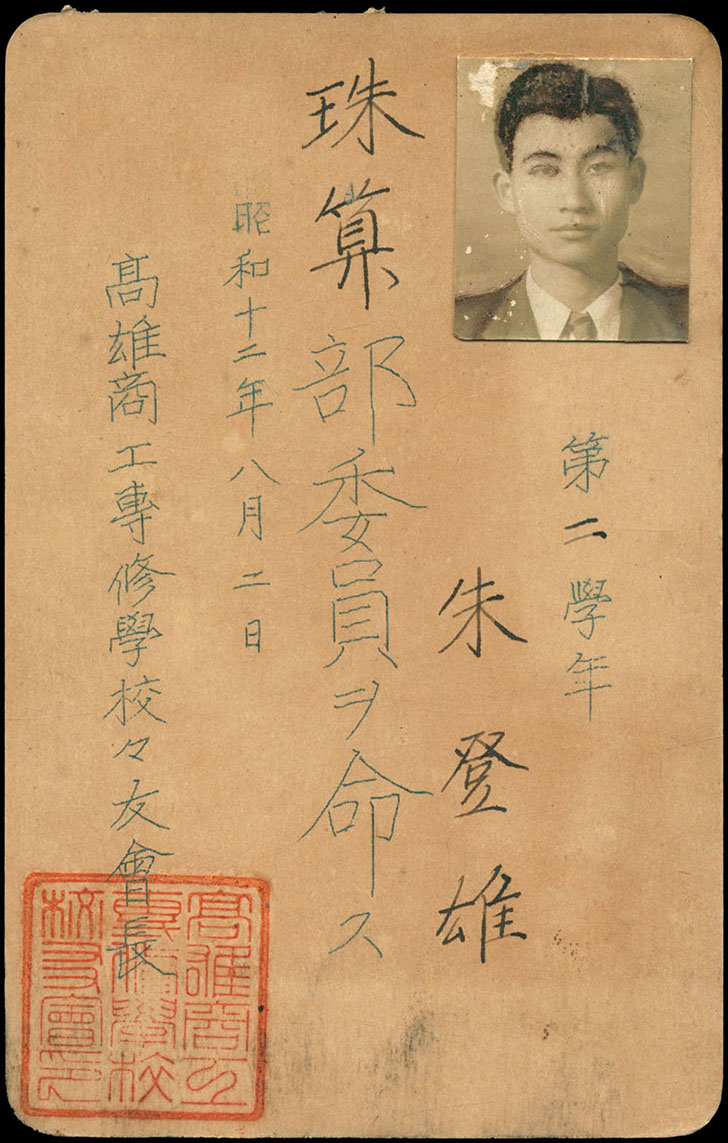 第二學年
朱登雄
珠算部委員ヲ命ス
昭和十二年八月二日
髙雄商工專修學校々友會長
高雄商工
專修學校
校友會